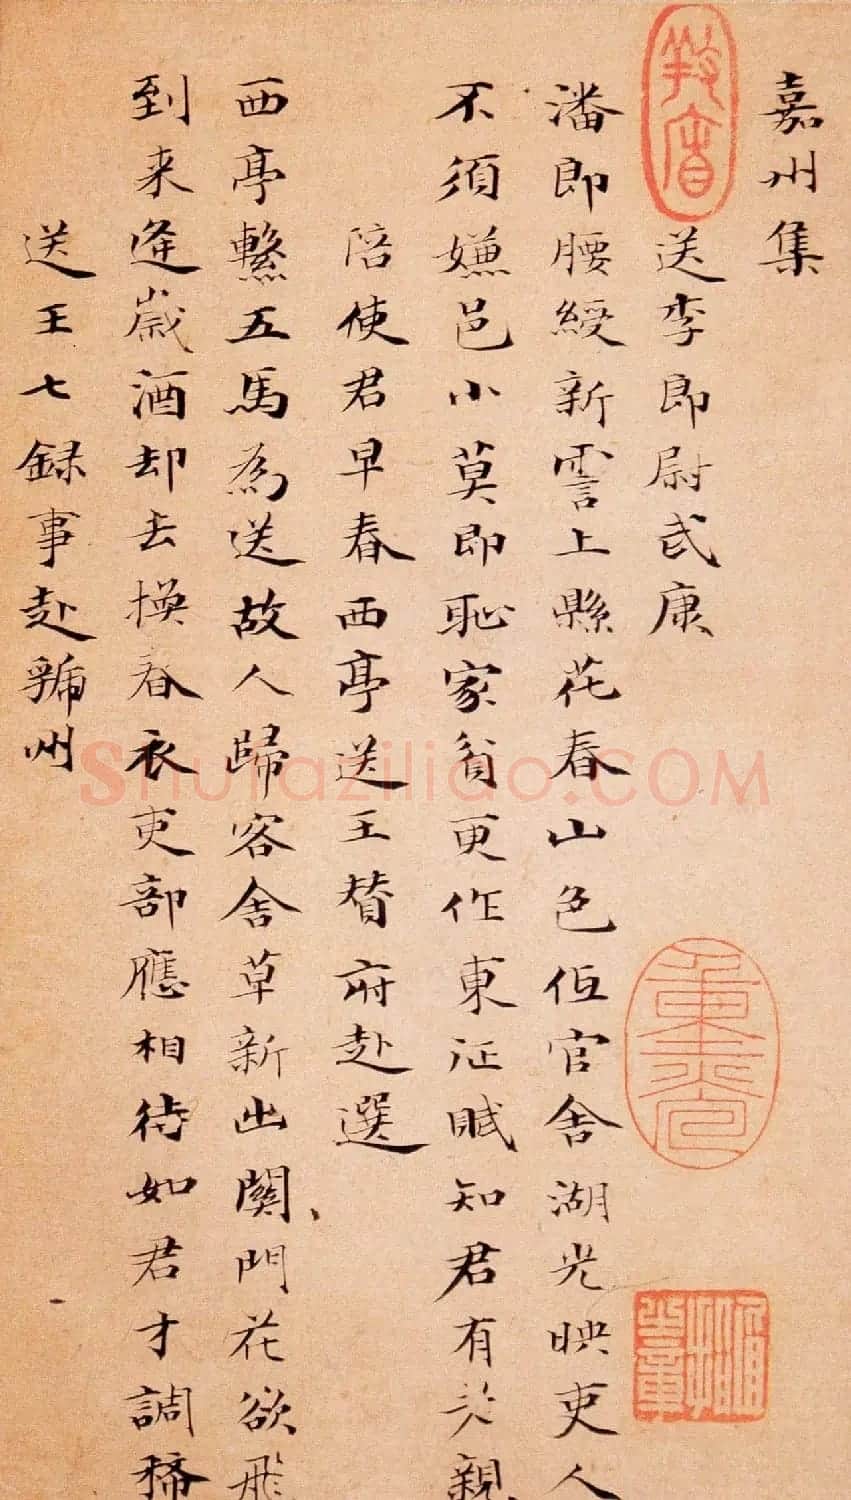 嘉州集
送李郎尉武康
潘郎腰綬新霅上縣花春山色低官舍湖光映吏人
不須嫌邑小莫即恥家貧更作東征賦知君有老親
陪使君早春西亭送王贊府赴選
西亭繫五馬為送故人歸客舍草新出關門花欲飛
到來逢歲酒却去換春衣吏部應相待如君才調稀
送王七録事赴虢州
Shufaziliao.COM